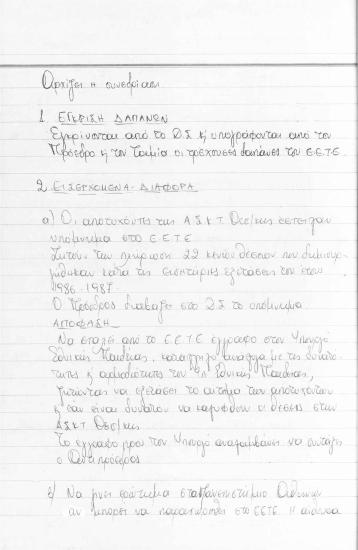 Αρχίζει η συνεδρίαση.
1. ΕΓΚΡΙΣΗ ΔΑΠΑΝΩΝ
Εγκρίνονται από το Δ.Σ κ' υπογράφονται από τον
Πρόεδρο κ' τον Ταμία οι τρέχουσες δαπάνες του Ε.Ε.Τ.Ε.
2. ΕΙΣΕΡΧΟΜΕΝΑ - ΔΙΑΦΟΡΑ
α) Οι αποτυχόντες της Α.Σ.Κ.Τ. Θεσ/κης έστειλαν
υπόμνημα στο Ε.Ε.Τ.Ε.
Ζητούν την πλήρωση 22 κενών θέσεων που δημιουρ-
γήθηκαν κατά τις εισιτήριες εξετάσεις του έτους
1986-1987.
Ο Πρόεδρος διαβάζει στο Δ.Σ το υπόμνημα.
ΑΠΟΦΑΣΗ:
Να σταλεί από το Ε.Ε.Τ.Ε έγγραφο στον Υπουργό
Εθνικής Παιδείας,
ζητώντας να εξετάσει το αίτημα των αποτυχόντων
κ' εάν είναι δυνατόν να καλυφθούν οι θέσεις στην
Α.Σ.Κ.Τ Θεσ/κης.
Το έγγραφο προς τον Υπουργό αναλαμβάνει να συντάξει
ο Αντιπρόεδρος
β) Να γίνει ερώτημα στο Πανεπιστήμιο Αθηνών
αν μπορεί να παραχωρηθεί στο ΕΕΤΕ η αίθουσα